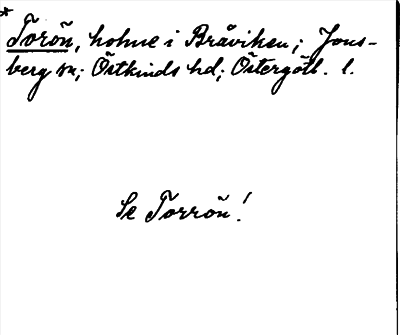 *
Torön, holme i Bråviken; Jons-
berg sn; Östkinds hd; Östergötl. l.
Se Torrön!